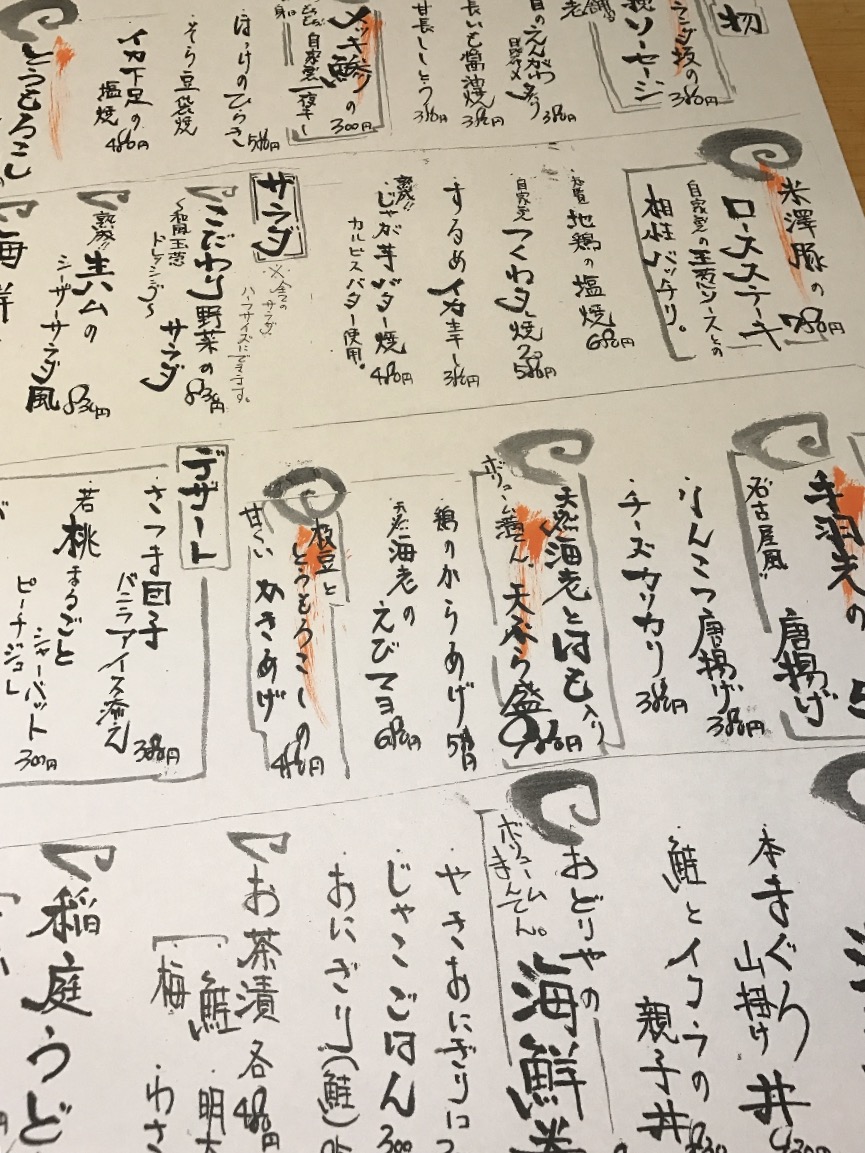 物
坂の
ソーセージ
380円
自のえんがわ炙り
380円
長いも醤油焼
380円
甘長ししとう
380円
メッキ鯵の
自家製一夜干し
300円
ほっけのひらき
580円
そら豆袋焼
イカ下足の
塩焼
480円
とうもろこし
米澤豚の
ロースステーキ
780円
自家製の玉葱ソースとの
相性バッチリ。
地鶏の塩焼
680円
自家製
つくねタレ焼
580円
するめイカ干し
380円
熟成!!
じゃが芋バター焼
カルピスバター使用。
480円
サラダ
※全ての
サラダ、
ハーフサイズにできます。
こだわり野菜の
サラダ
〜和風玉葱
ドレッシング〜
830円
熟成!!
生ハムの
シーザーサラダ風
830円
海鮮
手羽先の
唐揚げ
名古屋風!!
りんこつ唐揚げ
380円
チーズカリカリ
380円
天然海老とはも入り
天ぷら盛
980円
ボリューム満てん、
鶏のからあげ
580円
天然海老の
えびマヨ
680円
枝豆と
とうもろこしの
甘〜い かきあげ
480円
デザート
さつま団子
バニラアイス添え
380円
若桃まるごと
シャーベット
ピーチジュレ
300円
本まぐろ
山掛け丼
鮭とイクラの
親子丼
おどりやの
海鮮
ボリューム
まんてん。
やきおにぎり
じゃこごはん
300
おにぎり(鮭)
お茶漬 各480円
鮭
梅
明太
わさ
稲庭うど